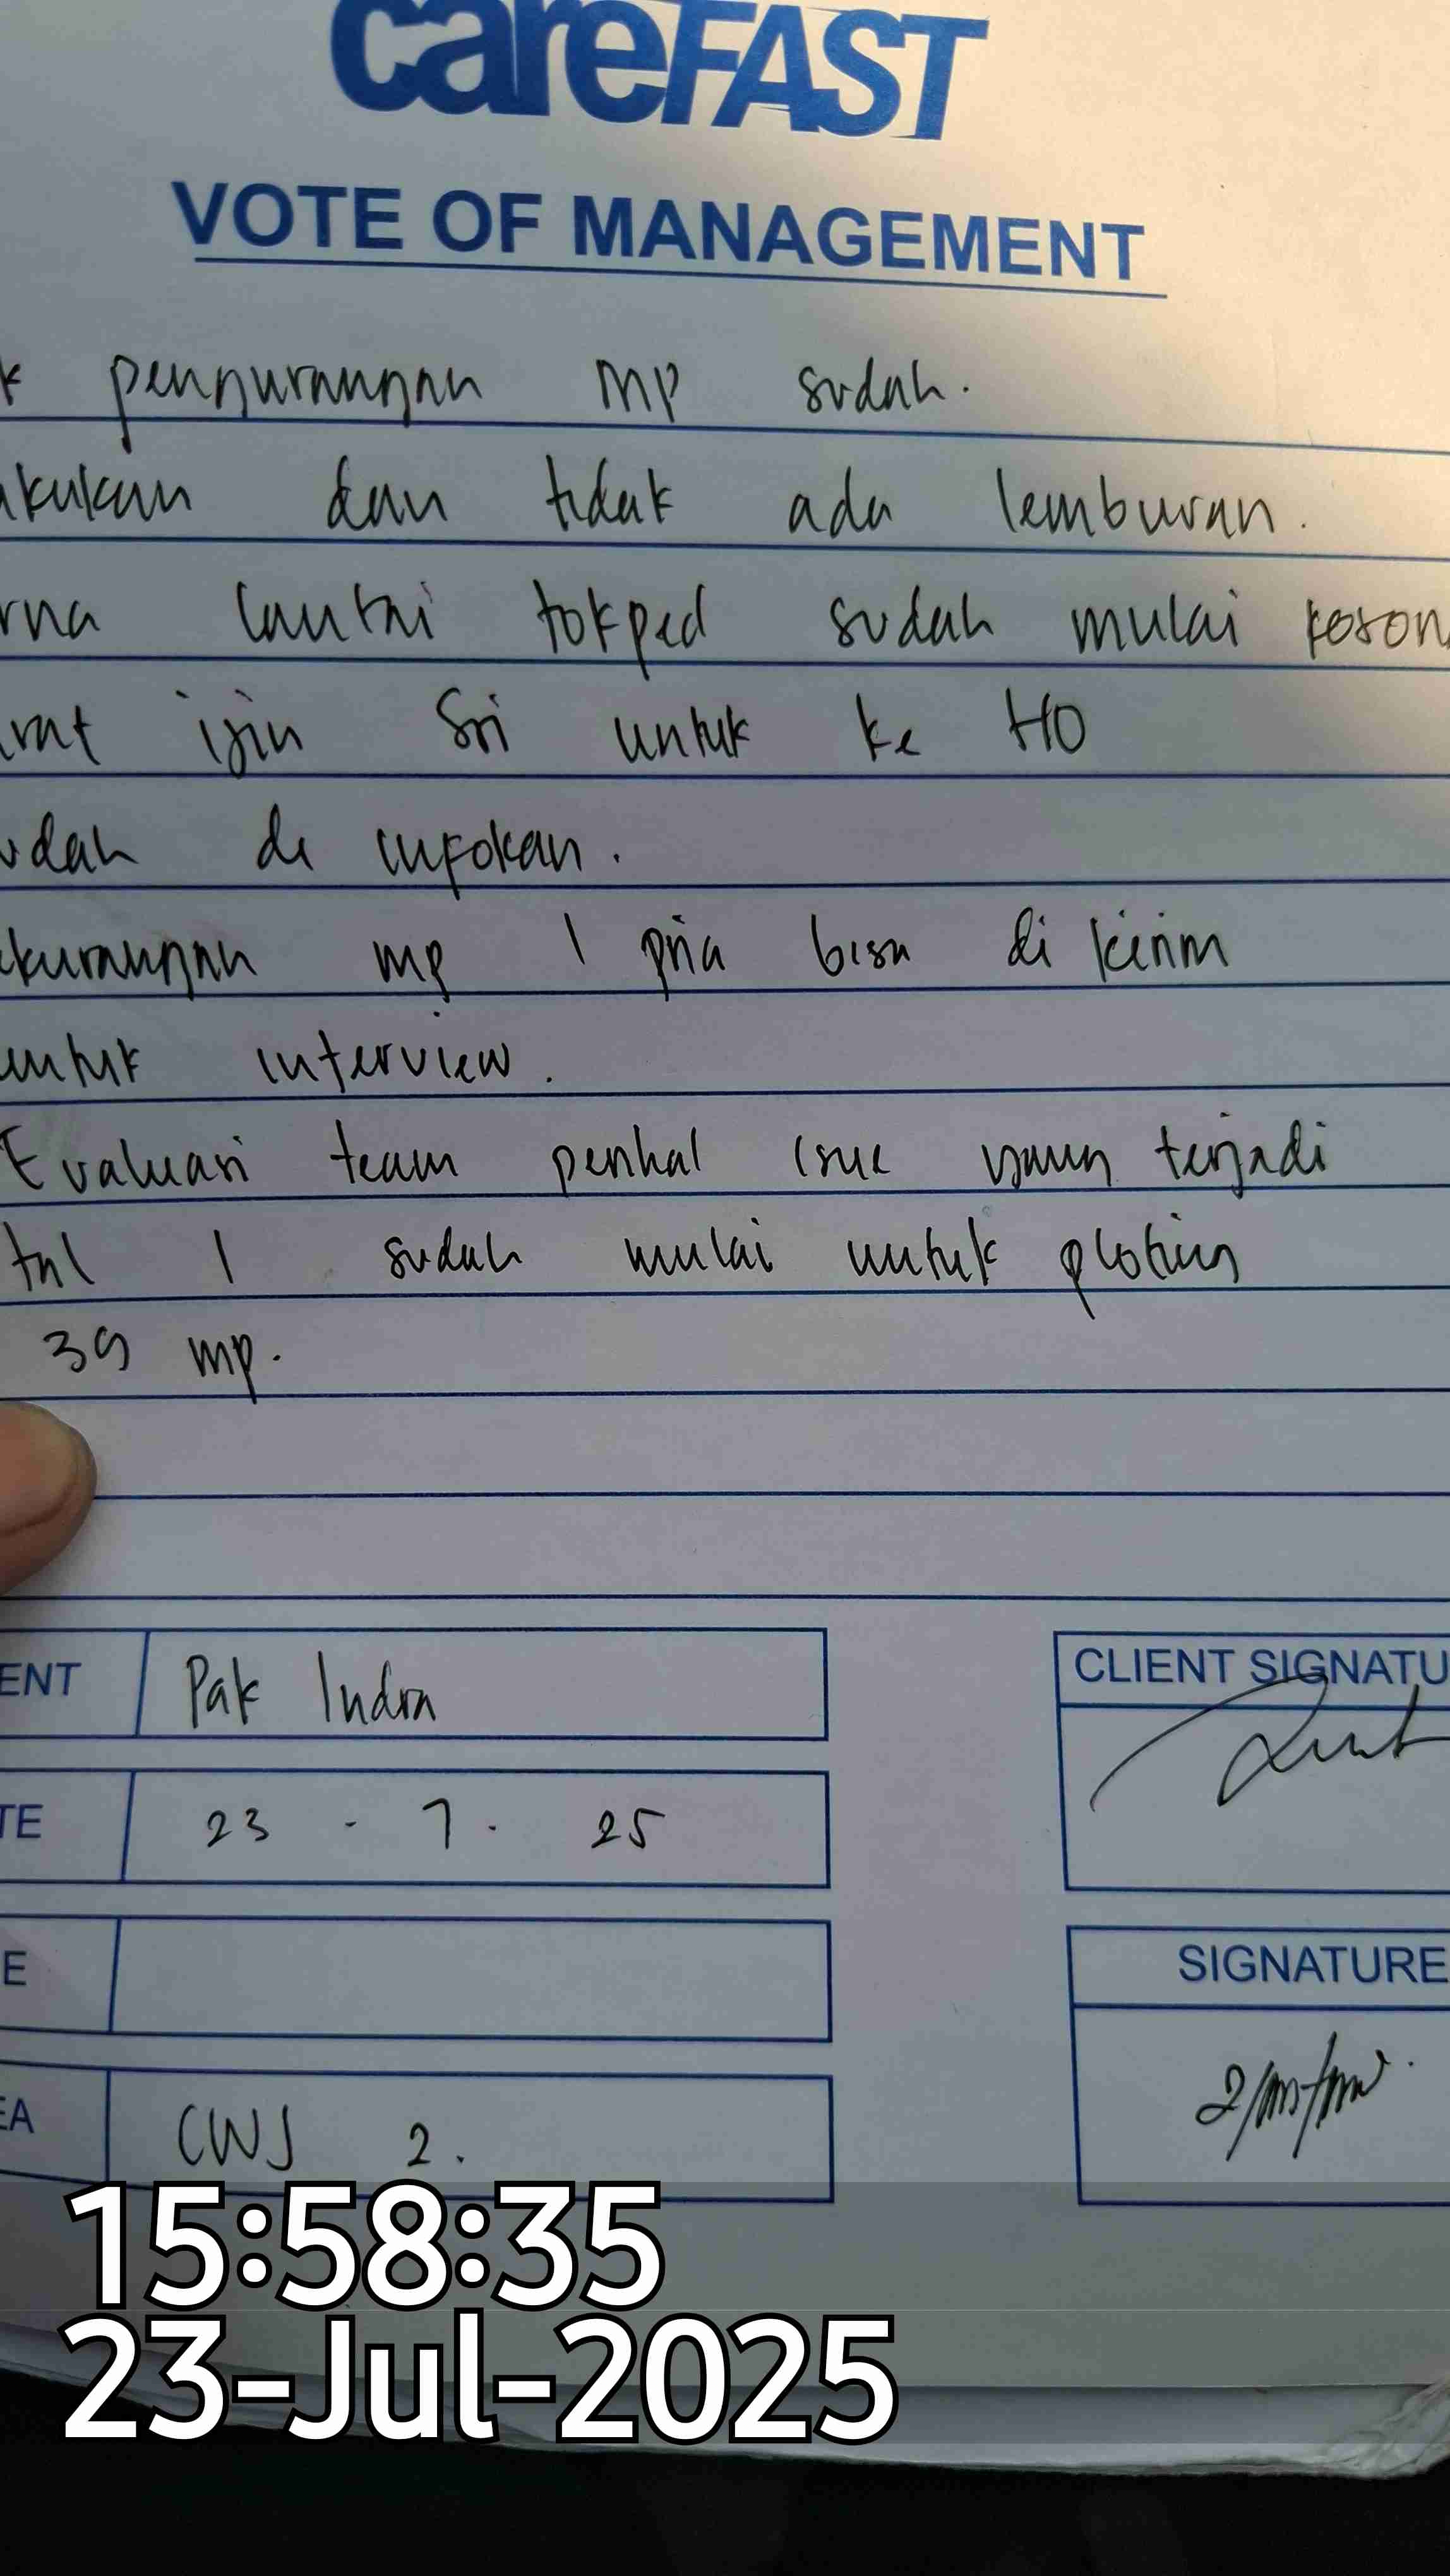 careFAST
VOTE OF MANAGEMENT
k pengurangan mp sudah.
akukan dan tidak ada lemburan.
rna lantai tokped sudah mulai koson
rat ijin Sri untuk ke HO
udah di infokan.
kurangan mp 1 pria bisa di kirim
untuk interview.
Evaluasi team perihal isue yang terjadi
tgl 1 sudah mulai untuk ploting
39 mp.
ENT Pak Indra
CLIENT SIGNATU
TE 23 - 7 - 25
E
SIGNATURE
EA CWJ 2.
15:58:35
23-Jul-2025